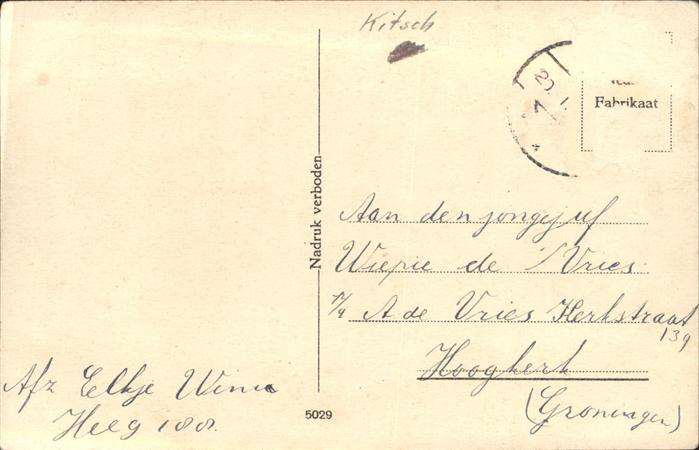 Kitsch
20
Fabrikaat
Nadruk verboden
Aan den jongejuf
Wiepie de Vries
p/a A de Vries Kerkstraat
139
Hoogkerk
(Groningen)
Afz Elkje
Heeg 188.
5029